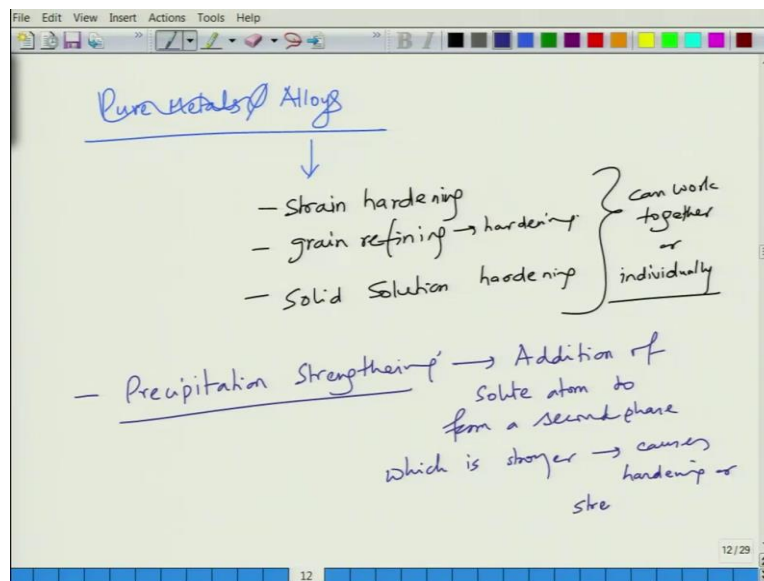 File Edit View Insert Actions Tools Help
B I
Pure Metals / Alloys
- Strain hardening
- grain refining → hardening
- Solid Solution hardening
can work
together
or
individually
- Precipitation Strengtheing → Addition of
Solute atom to
form a second phase
which is stronger → causes
hardening or
stre
12/29
12